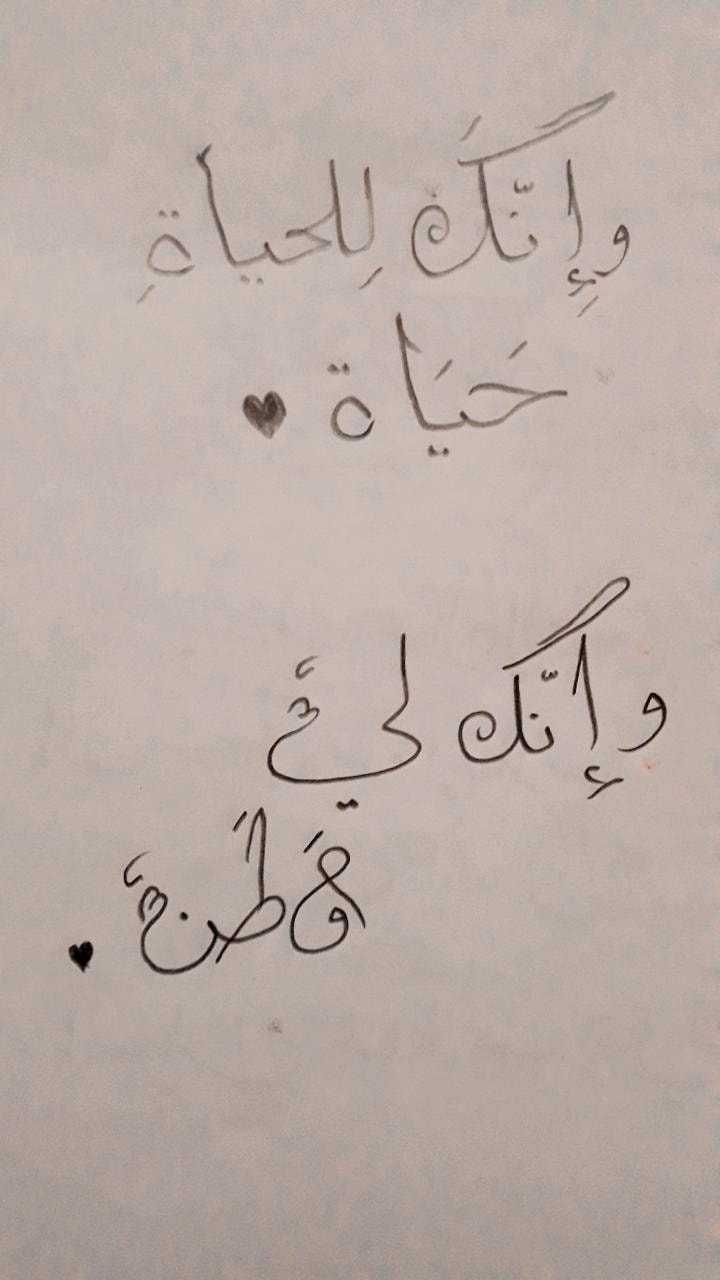 وإِنَّكَ لِلحياةِ
حَيَاة ♥
وإنّك لي
وَطَن ♥.